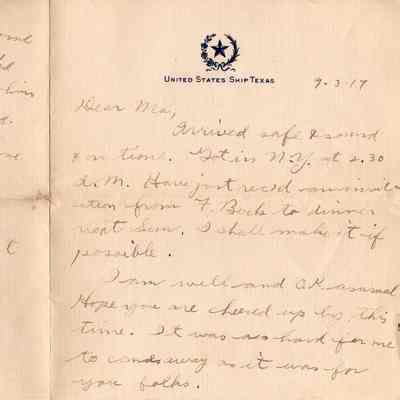 United States Ship Texas
9-3-17
Dear Ma,
Arrived safe & sound
& on time. Got in N.Y. at 2.30
A.M. Have just rec'd an invit
ation from F. Bock to dinner
next Sun. I shall make it if
possible.
I am well and OK as usual
Hope you are cheered up by this
time. It was as hard for me
to come away as it was for
you folks.